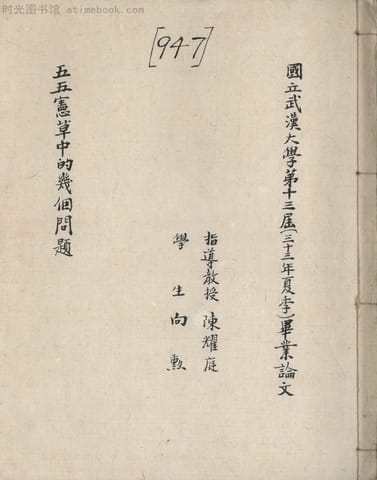 时光图书馆 atimebook.com
[947]
國立武漢大學第十三屆(三十三年夏季)畢業論文
指導教授 陳耀庭
學生 向勲
五五憲草中的幾個問題